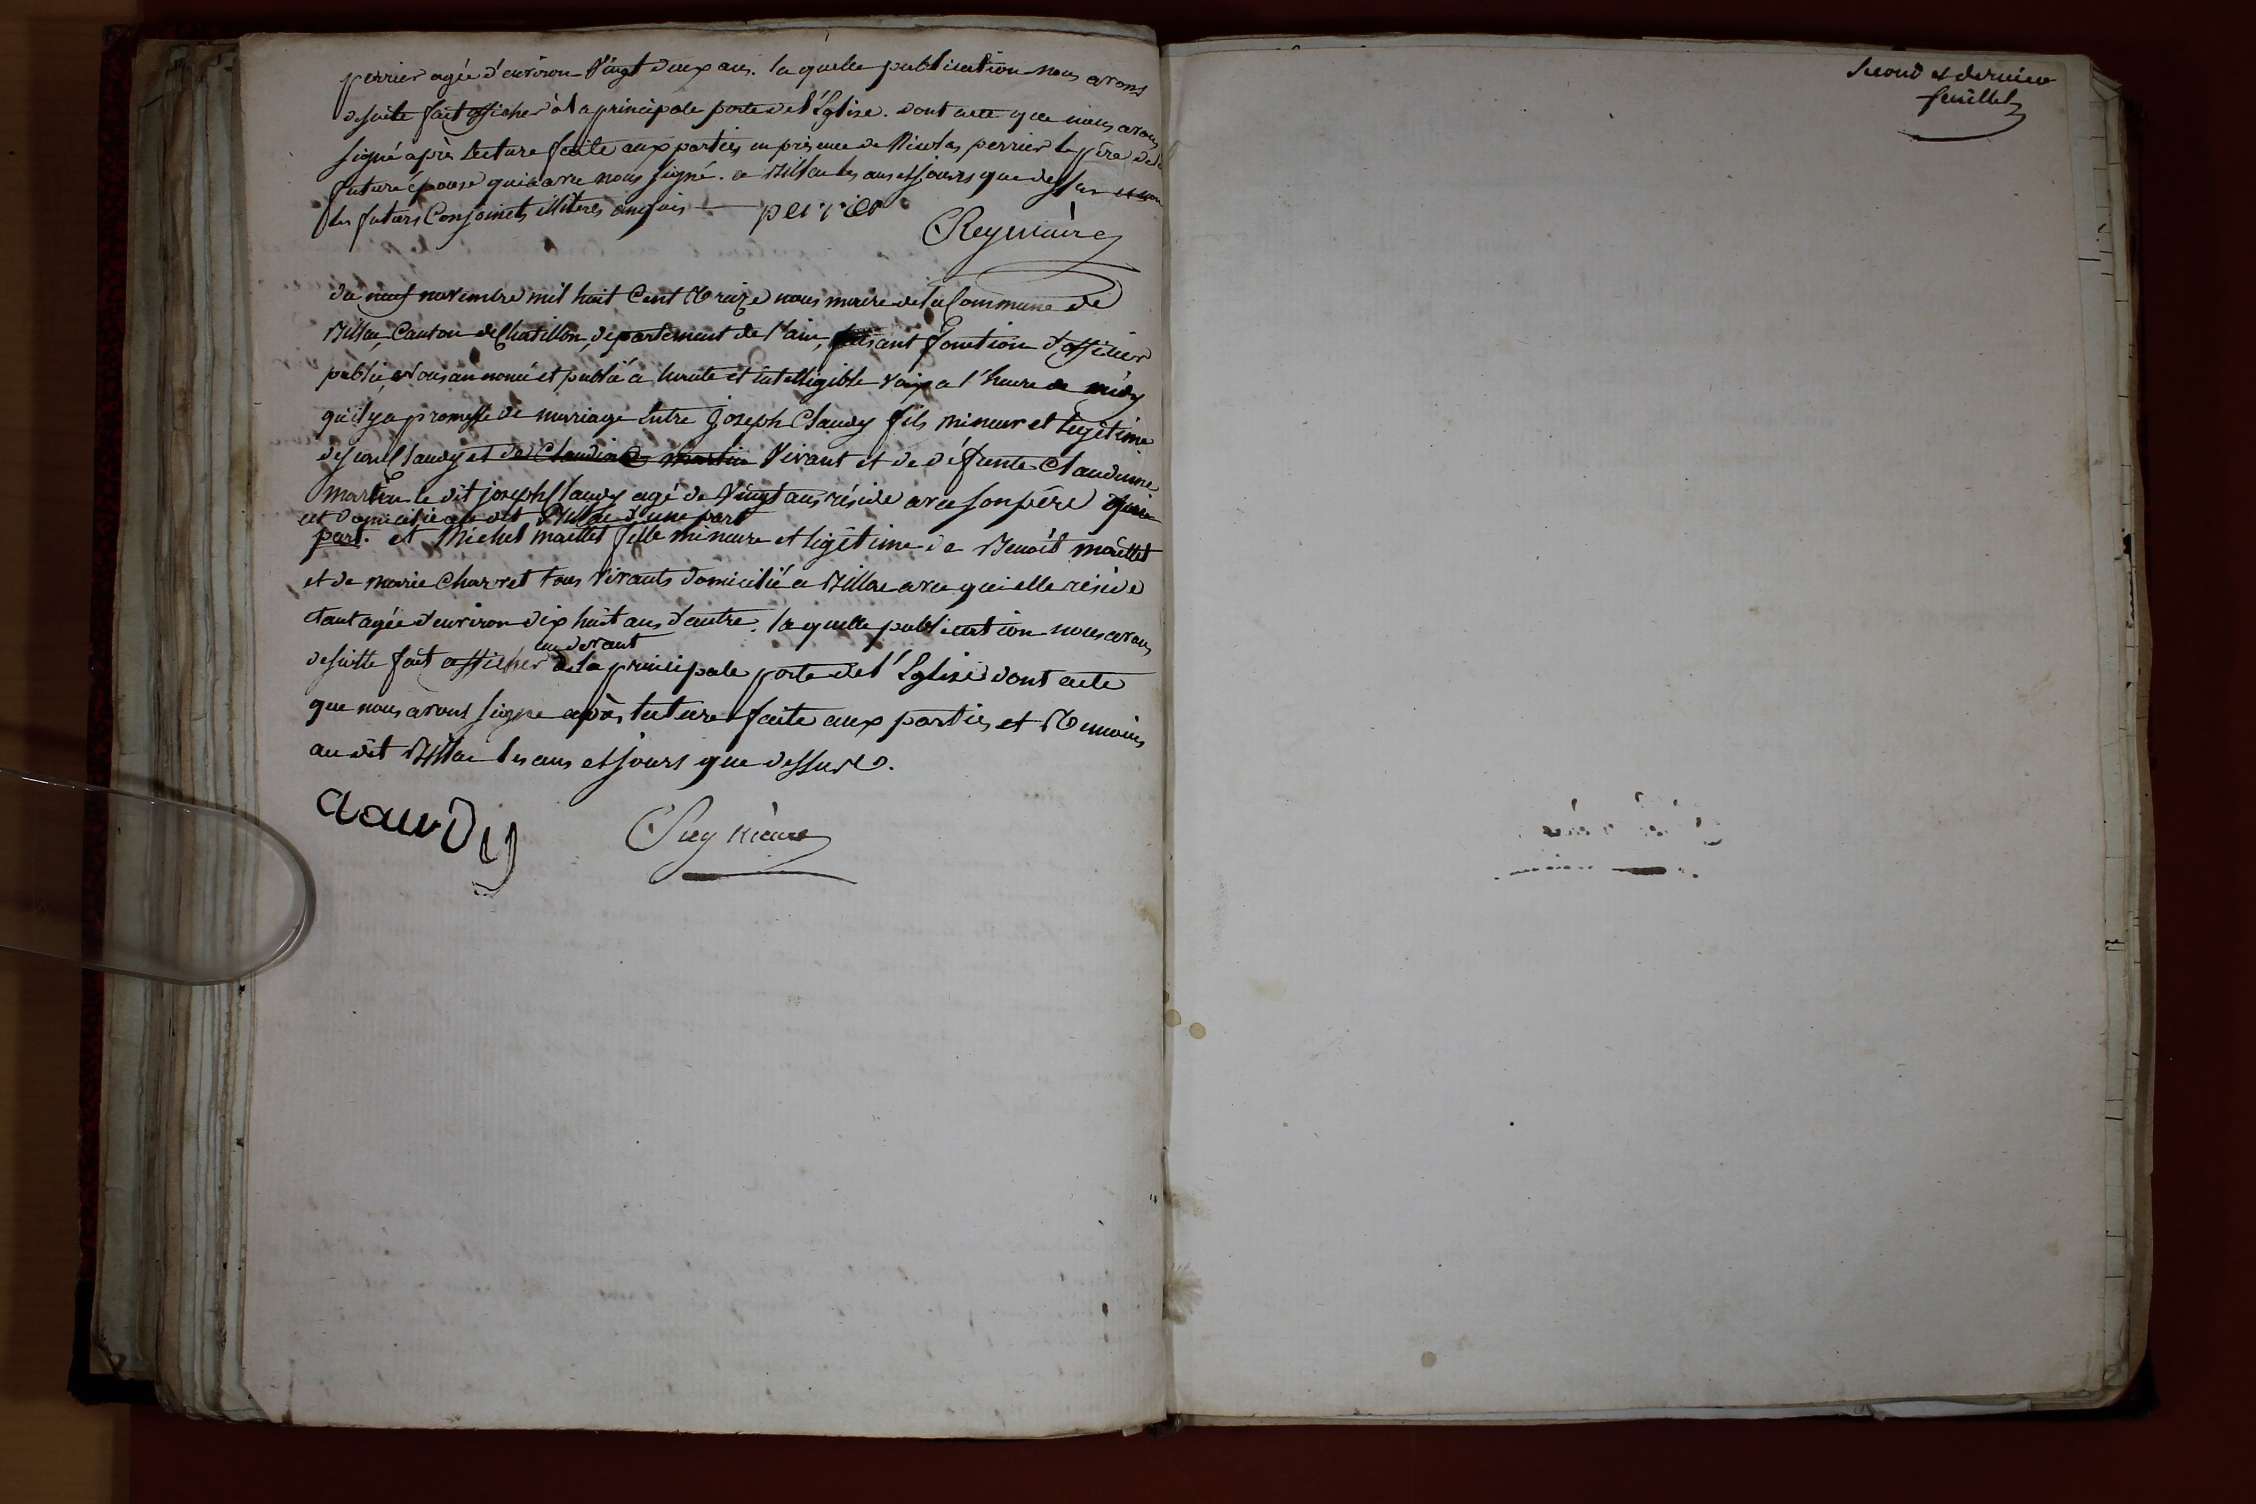 perrier agée d'environ Vingt deux ans. la quelle publication nous avons
desuite fait afficher à la principale porte de l'Eglise. dont acte que nous avons
signé après Lecture faite aux parties en présence de Nicolas perrier le père de la
future épouse qui a avec nous signé. a Billiac les ans et jours que dessus et non
les futurs Conjoinets illiterés enquis — perrier
Rey maire
du neuf novembre mil huit Cent treize nous maire de la Commune de
Billiac, Canton de Chatillon, departement de l'ain, faisant fonction d'officier
public, avons annoncé et publié a haute et intelligible voix a l'heure de midy
qu'il y a promesse de mariage entre Joseph Claudy fils mineur et legitime
de Claudy et de Claudine martin Vivant et de défunte Claudinne
martin le dit joseph Claudy agé de Vingt ans réside avec son père
et domicilié au dit Billiac d'une part
part. et Michel maillet fille mineure et légitime de Benoit maillet
et de marie Charvet tous Vivants domicilié a Billiac avec qui elle réside
etant agée d'environ dix huit ans d'autre. la quelle publication nous avons
au devant
desuitte fait afficher de la principale porte de l'Eglise dont acte
que nous avons signe après lecture faite aux parties et temoins
au dit Billiac les ans et jours que dessus.
claudy Rey maire
second et dernier
feuillet